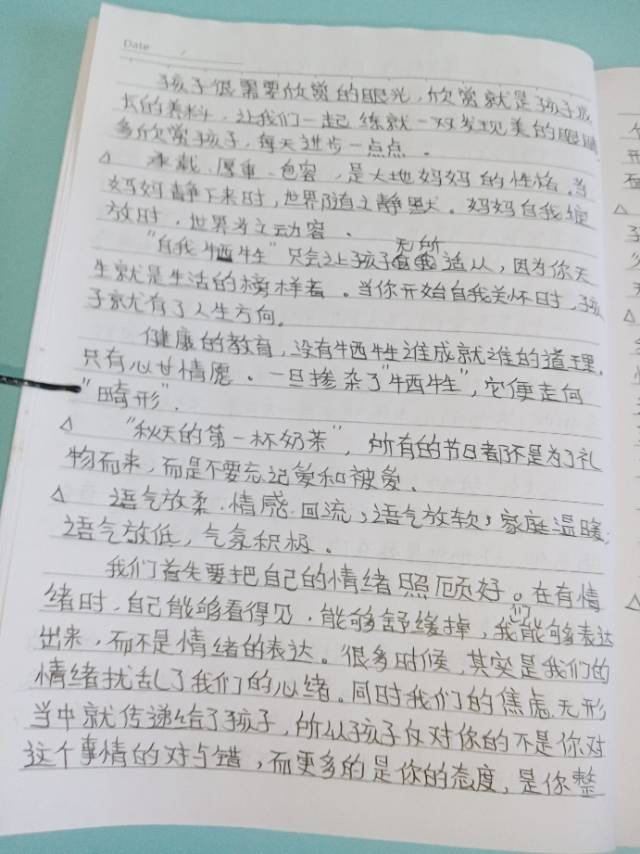 Date
孩子很需要欣赏的眼光,欣赏就是孩子成
长的养料,让我们一起练就一双发现美的眼睛
多欣赏孩子,每天进步一点点。
△ 承载、厚重、包容,是大地妈妈的性格。当
妈妈静下来时,世界随之静默。妈妈自我绽
放时,世界为之动容、
"自我牺牲"只会让孩子无所适从,因为你天
生就是生活的榜样者。当你开始自我关怀时,孩
子就有了人生方向。
健康的教育,没有牺牲谁成就谁的道理,
只有心甘情愿。一旦掺杂了"牺牲",它便走向
"畸形".
△ "秋天的第一杯奶茶",所有的节日都不是为了礼
物而来,而是不要忘记爱和被爱、
△ 语气放柔,情感回流;语气放软,家庭温暖;
语气放低,气氛积极。
我们首先要把自己的情绪照顾好。在有情
绪时,自己能够看得见,能够舒缓掉,我们能够表达
出来,而不是情绪的表达。很多时候,其实是我们的
情绪扰乱了我们的心绪。同时我们的焦虑无形
当中就传递给了孩子,所以孩子反对你的不是你对
这个事情的对与错,而更多的是你的态度,是你整